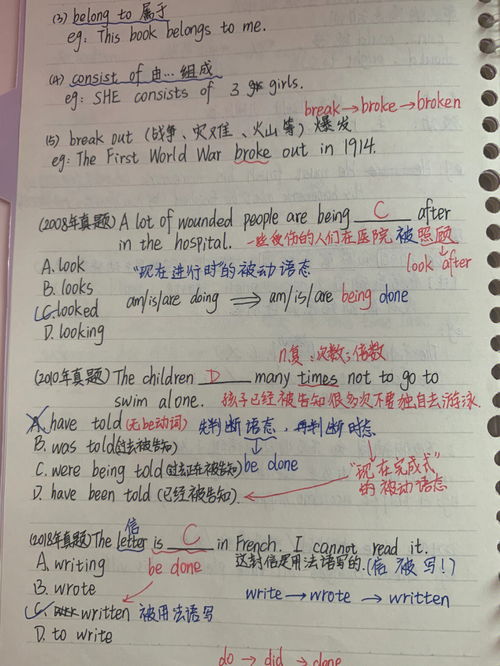 (3) belong to 属于
eg: This book belongs to me.
(4) consist of 由…组成
eg: SHE consists of 3 girls.
break→broke→broken
(5) break out (战争、灾难、火山等) 爆发
eg: The First World War broke out in 1914.
(2008年真题) A lot of wounded people are being C after
in the hospital. 一些受伤的人们在医院被照顾
look after
A. look "现在进行时"的被动语态
B. looks
C. looked am/is/are doing ⟹ am/is/are being done
D. looking
n.复:次数;倍数
(2010年真题) The children D many times not to go to
swim alone. 孩子已经被告知很多次不要独自去游泳.
A. have told (无be动词) 先判断语态,再判断时态
B. was told (过去被告知)
C. were being told (过去正在被告知) be done
D. have been told (已经被告知). "现在完成式"
的被动语态
信
(2018年真题) The letter is C in French. I cannot read it.
A. writing be done 这封信是用法语写的.(信被写!)
B. wrote write→wrote→written
C. written 被用法语写
D. to write
do → did → done